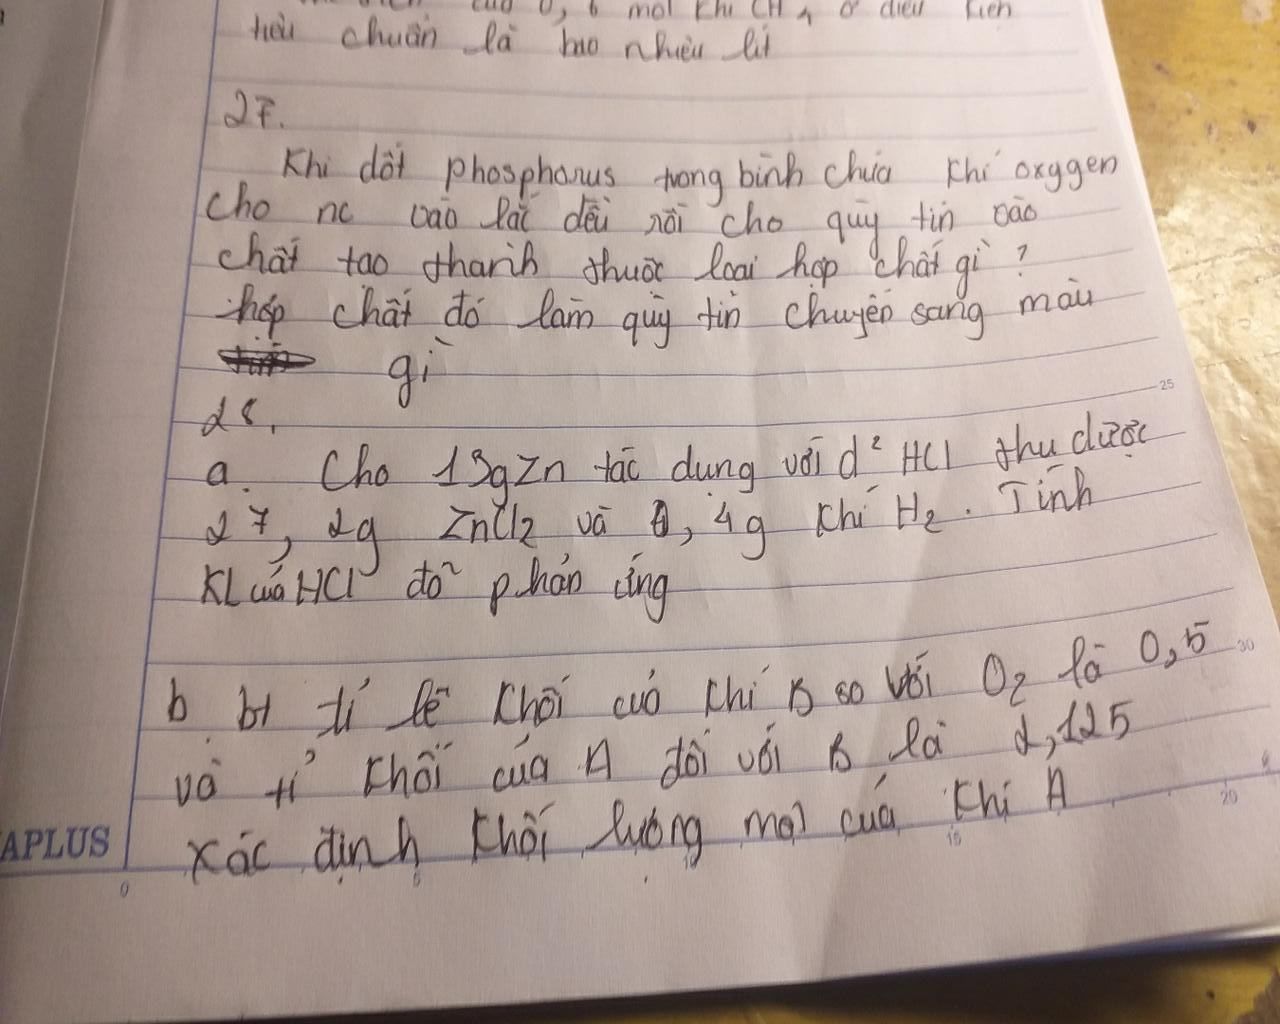 của 0,6 mol khí CH4 ở điều kiện
tiêu chuẩn là bao nhiêu lít
27.
Khi dốt phosphorus trong bình chứa khí oxygen
cho nc vào lắc đều rồi cho quỳ tin vào
chất tao thành thuộc loai hợp chất gì ?
hợp chất đó làm quỳ tin chuyển sang màu
gì
28.
a. Cho 13g Zn tác dụng với d² HCl thu được
27, 2g ZnCl2 và 0, 4g khí H2. Tính
KL của HCl đã phản ứng
b bt tỉ lê khối của khí B so với O2 là 0,5
và tỉ khối của A đối với B là 2,125
xác định khối lượng mol của khí A
APLUS
0
5
10
15
20
25
30